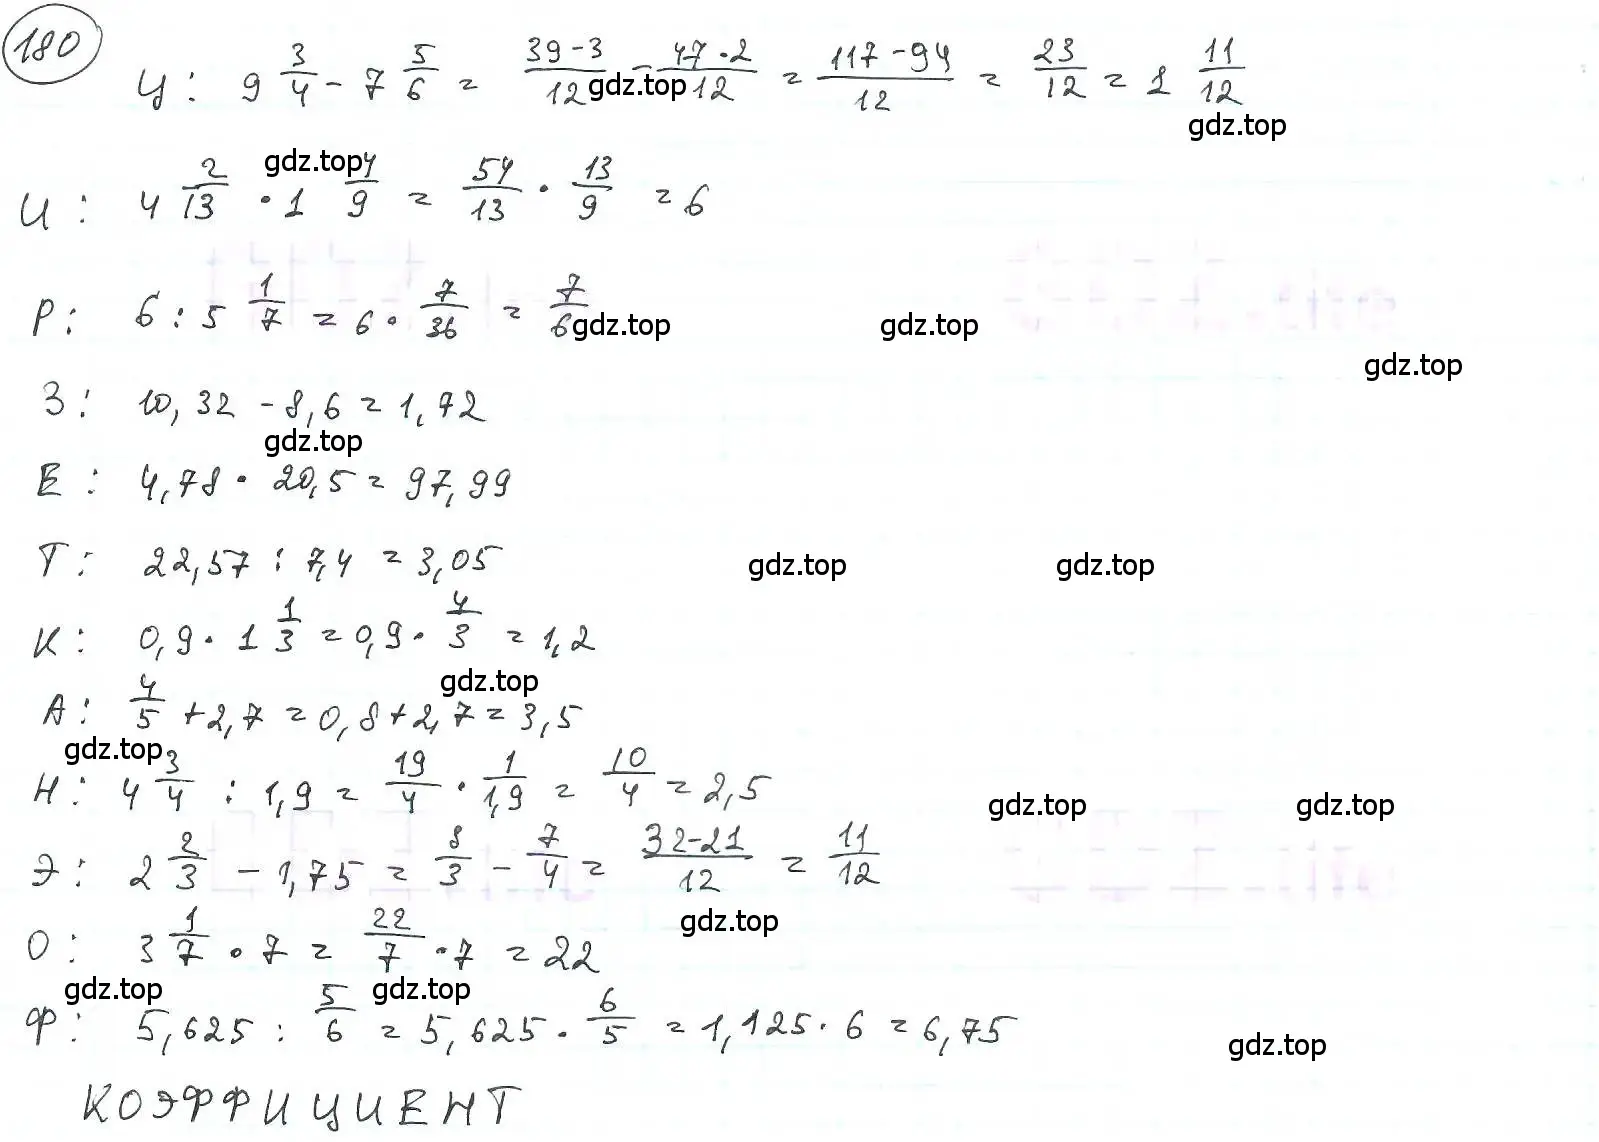 180
Ц: 9 3/4 - 7 5/6 = (39·3)/12 - (47·2)/12 = (117-94)/12 = 23/12 = 1 11/12
gdz.top
gdz.top
gdz.top
И: 4 2/13 · 1 4/9 = 54/13 · 13/9 = 6
Р: 6 : 5 1/7 = 6 · 7/36 = 7/6
gdz.top gdz.top
gdz.top
З: 10,32 - 8,6 = 1,72
gdz.top
Е: 4,78 · 20,5 = 97,99
Т: 22,57 : 7,4 = 3,05
gdz.top gdz.top
К: 0,9 · 1 1/3 = 0,9 · 4/3 = 1,2
gdz.top
А: 4/5 + 2,7 = 0,8 + 2,7 = 3,5
gdz.top
Н: 4 3/4 : 1,9 = 19/4 · 1/1,9 = 10/4 = 2,5
gdz.top gdz.top
Э: 2 2/3 - 1,75 = 8/3 - 7/4 = (32-21)/12 = 11/12
gdz.top
О: 3 1/7 · 7 = 22/7 · 7 = 22
gdz.top gdz.top
Ф: 5,625 : 5/6 = 5,625 · 6/5 = 1,125 · 6 = 6,75
gdz.top
КОЭФФИЦИЕНТ